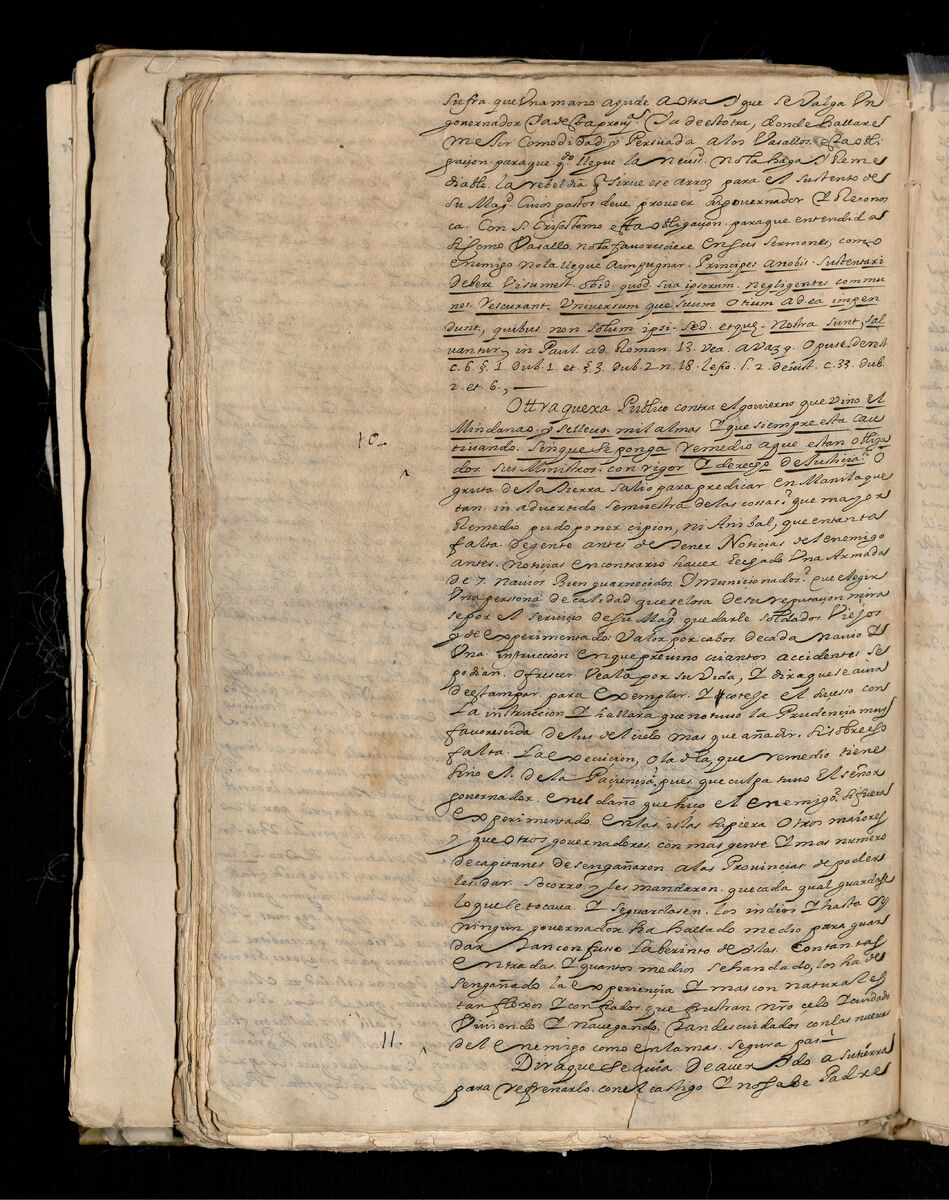 sufra. que Una mano ayude a otra Y que se Valga Un
governador Ya de esta provª. Ya de estotra, donde hallare
mejor Comodidad. y Persuada a los Vasallos. esta obli
gaçion. para que qdo. llegue la neusd. no la haga Yrreme
diable. la rebeldia q sirue ese arroz para el sustento de
su Magd. Cuios gastos deve proveer el governador Y Reconos
ca. Con S. Crisostomo esta obligaçion. para que entendida
si como Vasallo. no la favoresciere en sus sermones, como
enemigo no la llegue a impugnar. Principes anobis. sustentari
Debere Visum est. ob id. quod. sua ipsorum. negligentes commu
nes. Vescurant. Universum que suum otium ad ea impen
dunt., quibus non solum ipsi. sed. et quę. nostra sunt, sal
vantur, in Paul. ad. Roman. 13. Vea. a Vazq. Opusc. de rest
c. 6. §. 1. dub. 1. et. §. 3. dub. 2. n. 18. lesio. l. 2. de iust. c. 33. dub.
2. et. 6.,
Ottra quexa Publico contra el govierno que Vino el
10.
Mindanao. y se lleuo. mil almas Y que siempre esta cau
tiuando. sin que se ponga remedio a que estan obliga
dos. sus Ministros. con rigor Y derego de Justicia.
gruta de la Sierra salio para predicar en Manila que
tan. in advertido se muestra de las cossas. que mayor
Remedio pudo poner cipion, ni Anibal, que en tanta
falta. de gente antes de tener Noticias del enemigo
antes. noticias en contrario hauer llegado Una Armada
de 7. nauios Bien guarnecidos Y municionados. que elegir
Una persona de calidad que selosa de su reputaçion mira
se por el seruiçio de su Magd. que darle soldados Viejos
y de experimentado Valor por cabos. de cada nauio Y
Una. instruccion en que preuino cuantos accidentes se
podian. ofrescer Veala por su Vida, Y dira que se auia
de estampar. para exemplar. Y coteje el suceso con
La instruccion Y hallara que no tuuo la Prudençia mas
favorescida de lus del cielo mas que añadir. si sobre eso
falta. La execuçion, o la dña, que remedio tiene
sino el. de la Paçiençia. pues que culpa tuuo el señor
governador. en el daño que hiço el enemigo. si fuera
experimentado. en las islas supiera Otros maiores
y que otros governadores, con mas gente Y mas numero
de capitanes desengañaron a las Provincias de poder
les. dar. socorro y les mandaron. que cada qual guardase
lo que le tocaua. Y se guardasen. los indios Y hasta oy
ningun governador ha hallado medio para guar
dar tan confuso Laberinto de islas. Con tantas
entradas. Y quantos medios se han dado, los ha de
sengañado la experiençia Y mas con naturales
tan floxos Y confiados que frustran nro çelo Y cuidado
Viuiendo Y nauegando, tan descuidados con las nueuas
del enemigo como en la mas. segura pas
11.
Dira que se auia de auer Ydo a su tierra
para refrenarlo. con el castigo Y no sabe Padre